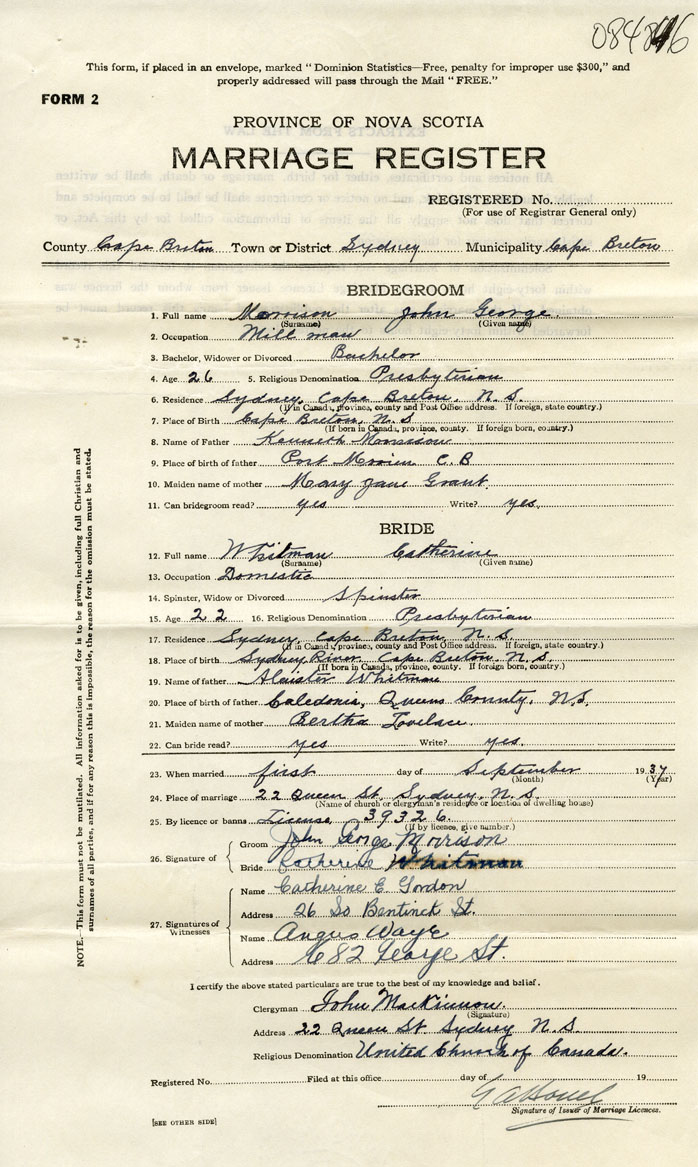 084846
This form, if placed in an envelope, marked "Dominion Statistics—Free, penalty for improper use $300," and
properly addressed will pass through the Mail "FREE."
FORM 2
PROVINCE OF NOVA SCOTIA
MARRIAGE REGISTER
REGISTERED No.
(For use of Registrar General only)
County Cape Breton Town or District Sydney Municipality Cape Breton
BRIDEGROOM
1. Full name Morrison John George
(Surname) (Given name)
2. Occupation Mill man
3. Bachelor, Widower or Divorced Bachelor
4. Age 26 5. Religious Denomination Presbyterian
6. Residence Sydney, Cape Breton, N. S.
(If in Canada, province, county and Post Office address. If foreign, state country.)
7. Place of Birth Cape Breton, N. S.
(If born in Canada, province, county. If foreign born, country.)
8. Name of Father Kenneth Morrison
9. Place of birth of father Port Morien C. B
10. Maiden name of mother Mary Jane Grant
11. Can bridegroom read? yes Write? yes.
BRIDE
12. Full name Whitman Catherine
(Surname) (Given name)
13. Occupation Domestic
14. Spinster, Widow or Divorced Spinster
15. Age 22 16. Religious Denomination Presbyterian
17. Residence Sydney, Cape Breton, N. S.
(If in Canada, province, county and Post Office address. If foreign, state country.)
18. Place of birth Sydney River Cape Breton, N. S.
(If born in Canada, province, county. If foreign born, country.)
19. Name of father Alaister Whitman
20. Place of birth of father Caledonia, Queens County, N.S.
21. Maiden name of mother Bertha Lovelace.
22. Can bride read? yes Write? yes.
23. When married first day of September 1937
(Month) (Year)
24. Place of marriage 22 Queen St, Sydney, N. S.
(Name of church or clergyman's residence or location of dwelling house)
25. By licence or banns License, 39326.
(If by licence, give number.)
26. Signature of
Groom John George Morrison
Bride Catherine Whitman
27. Signatures of Witnesses
Name Catherine E Gordon
Address 26 So Bentinck St.
Name Angus Waye
Address 682 George St.
I certify the above stated particulars are true to the best of my knowledge and belief.
Clergyman John MacKinnon.
(Signature)
Address 22 Queen St Sydney N. S.
Religious Denomination United Church of Canada.
Registered No. Filed at this office day of 19
Signature of Issuer of Marriage Licences.
[SEE OTHER SIDE]
NOTE.—This form must not be mutilated. All information asked for is to be given, including full Christian and
surnames of all parties, and if for any reason this is impossible, the reason for the omission must be stated.